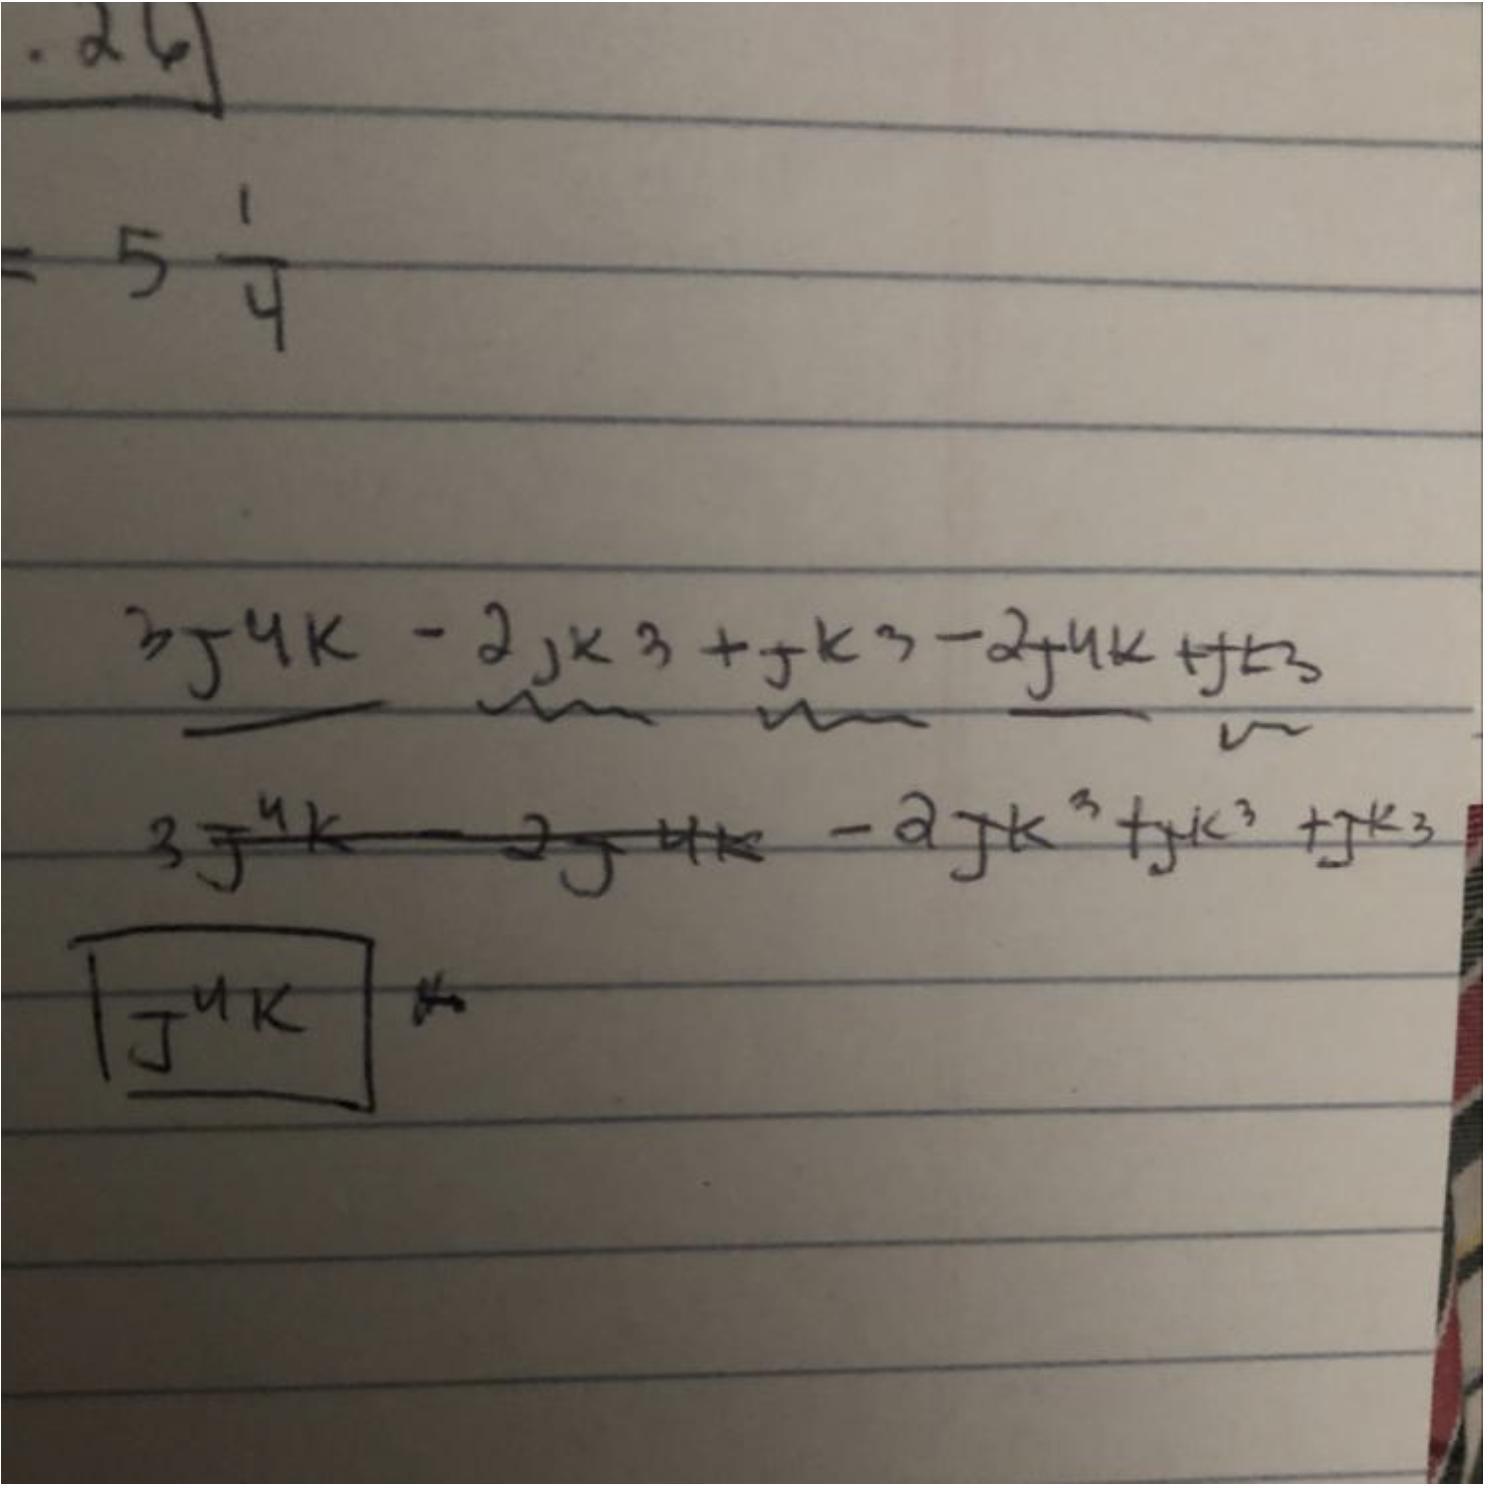 .26
= 5 1/4
3j4k - 2jk3 + jk3 - 2j4k + jk3
3j⁴k - 2j4k - 2jk³ + jk³ + jk3
J⁴K